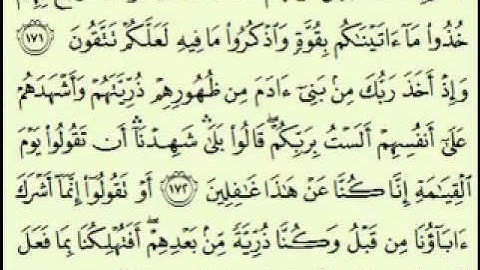 خُذُوا۟ مَآ ءَاتَيْنَـٰكُم بِقُوَّةٍ وَٱذْكُرُوا۟ مَا فِيهِ لَعَلَّكُمْ تَتَّقُونَ ١٧١
وَإِذْ أَخَذَ رَبُّكَ مِنۢ بَنِىٓ ءَادَمَ مِن ظُهُورِهِمْ ذُرِّيَّتَهُمْ وَأَشْهَدَهُمْ
عَلَىٰٓ أَنفُسِهِمْ أَلَسْتُ بِرَبِّكُمْ ۖ قَالُوا۟ بَلَىٰ ۛ شَهِدْنَآ ۛ أَن تَقُولُوا۟ يَوْمَ
ٱلْقِيَـٰمَةِ إِنَّا كُنَّا عَنْ هَـٰذَا غَـٰفِلِينَ ١٧٢ أَوْ تَقُولُوٓا۟ إِنَّمَآ أَشْرَكَ
ءَابَآؤُنَا مِن قَبْلُ وَكُنَّا ذُرِّيَّةً مِّنۢ بَعْدِهِمْ ۖ أَفَتُهْلِكُنَا بِمَا فَعَلَ